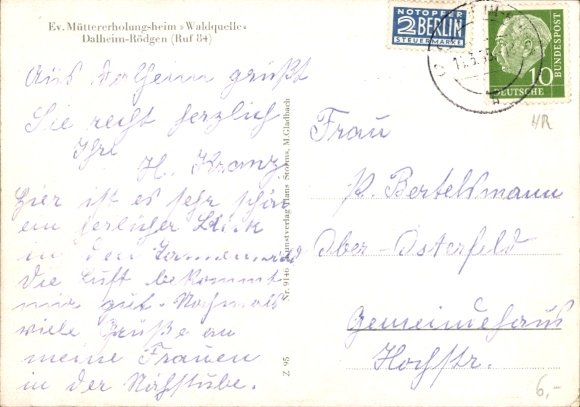 Ev. Müttererholungsheim »Waldquelle«
Dalheim-Rödgen (Ruf 84)
Aus Dalheim grüßt
Sie recht herzlich
Ihre
H. Kranz
Hier ist es sehr schön
ein herlicher Blick
in den Tannenwald
Die Luft bekommt
mir gut. Nochmals
viele Grüße an
meine Frauen
in der Nähstube.
Z 95
Nr. 9146 Kunstverlag Hans Storms, M.Gladbach
NOTOPFER
2 BERLIN
STEUERMARKE
10
DEUTSCHE
BUNDESPOST
HR
Frau
Bertelsmann
Ober-Osterfeld
Gemeindehaus
Hochstr.
6,-